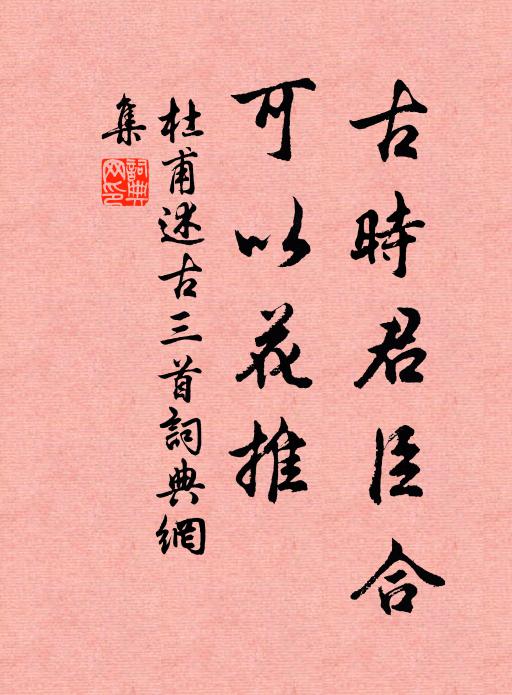 古時君臣合
可以花推
杜甫述古三首詞典網
集
詞典网印